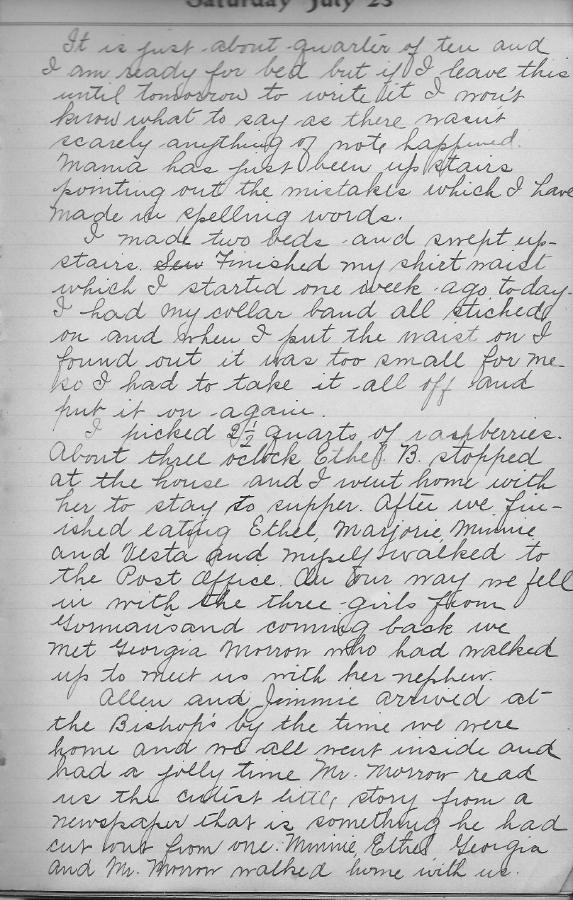 Saturday July 23
It is just about quarter of ten and
I am ready for bed but if I leave this
until tomorrow to write it I won't
know what to say as there wasnt
scarely anything of note happened.
Mama has just been up stairs
pointing out the mistakes which I have
made in spelling words.
I made two beds and swept up-
stairs. Sew Finished my shirt waist
which I started one week ago today.
I had my collar band all stiched
on and when I put the waist on I
found out it was too small for me.
so I had to take it all off and
put it on again.
I picked 2 1/2 quarts of raspberries.
About three oclock Ethel B. stopped
at the house and I went home with
her to stay to supper. After we fin-
ished eating Ethel, Marjorie, Minnie
and Vesta and myself walked to
the Post Office. On our way we fell
in with the three girls from
Gormans and coming back we
met Georgia Morrow who had walked
up to meet us with her nephew.
Allen and Jimmie arrived at
the Bishop's by the time we were
home and we all went inside and
had a jolly time Mr. Morrow read
us the cutist little story from a
newspaper that is something he had
cut out from one. Minnie, Ethel Georgia
and Mr. Morrow walked home with us.